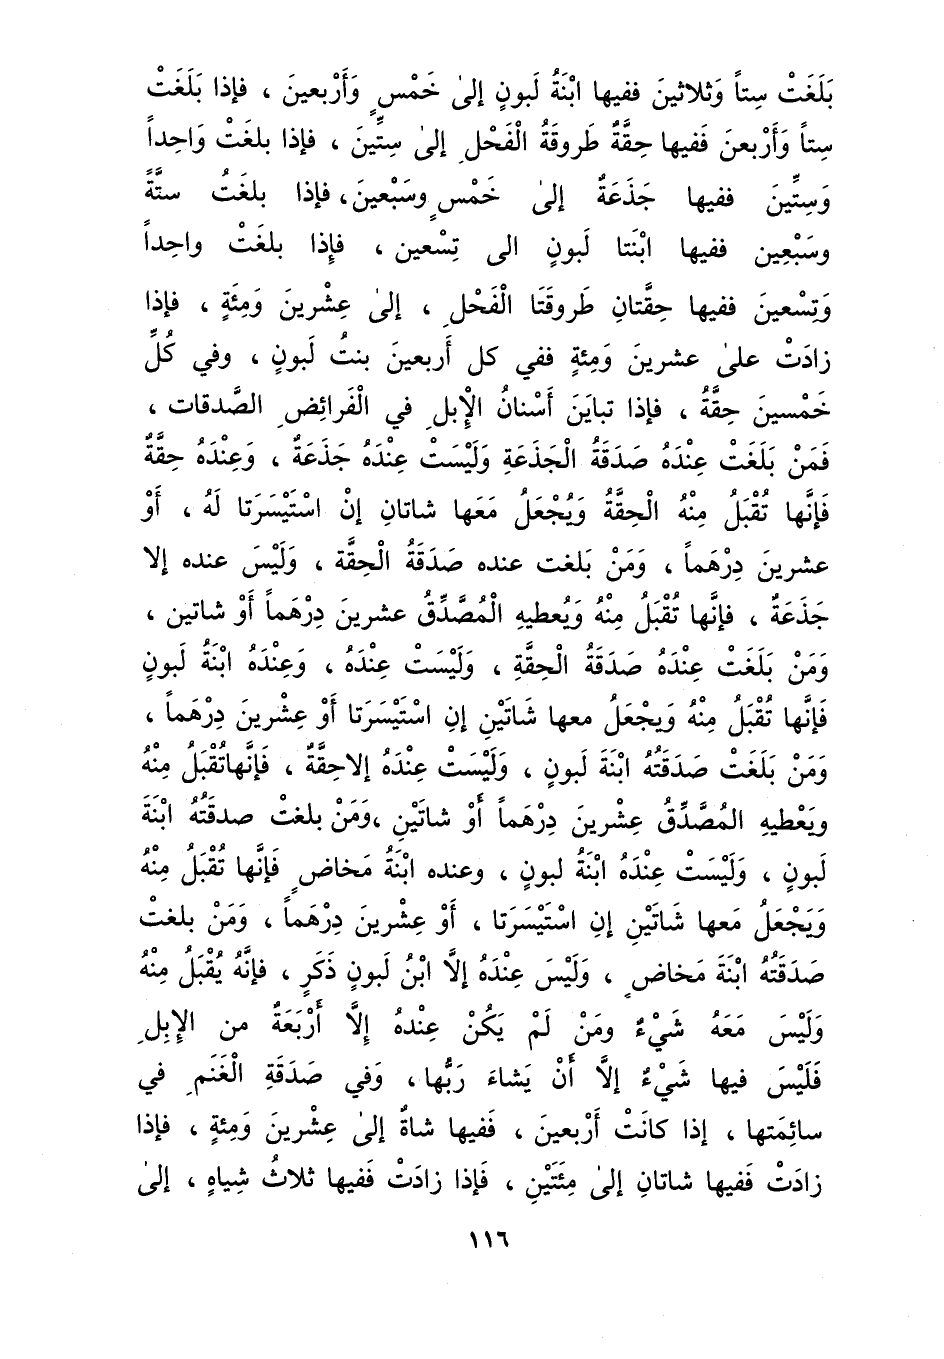 بَلَغَتْ سِتاً وَثلاثينَ ففيها ابْنَةُ لَبونٍ إلىٰ خَمْسٍ وَأَرْبعينَ ، فإذا بَلَغَتْ
سِتاً وَأَرْبعنَ فَفيها حِقَّةٌ طَروقَةُ الْفَحْلِ إلىٰ سِتِّينَ ، فإذا بلغَتْ وَاحِداً
وَسِتِّينَ ففيها جَذَعَةٌ إلىٰ خَمْسٍ وسَبْعينَ، فإذا بلغَتُ ستَّةً
وسَبْعِين ففيها ابْنَتا لَبونٍ الى تِسْعين ، فإِذا بلغَتْ واحِداً
وَتِسْعينَ ففيها حِقَّتانِ طَروقَتَا الْفَحْلِ ، إلىٰ عِشْرينَ وَمِئَةٍ ، فإذا
زادَتْ علىٰ عشرينَ وَمِئةٍ ففي كل أَربعينَ بنتُ لَبونٍ ، وفي كُلِّ
خَمْسينَ حِقَّةُ ، فإذا تبايَنَ أَسْنانُ الْإبلِ في الْفَرائِضِ الصَّدقات ،
فَمَنْ بَلَغَتْ عِنْدَهُ صَدَقَةُ الْجَذَعَةِ وَلَيْسَتْ عِنْدَهُ جَذَعةٌ ، وَعِنْدَهُ حِقَّةٌ
فَإنَّها تُقْبَلُ مِنْهُ الْحِقَّةُ وَيُجْعَلُ مَعَها شاتانِ إنْ اسْتَيْسَرَتا لَهُ ، أَوْ
عشرينَ دِرْهَماً ، وَمَنْ بَلغت عنده صَدَقَةُ الْحِقَّة ، وَلَيْسَ عنده إلا
جَذَعَةٌ ، فإنَّها تُقْبَلُ مِنْهُ وَيُعطيهِ الْمُصَّدِّقُ عشرينَ دِرْهَماً أَوْ شاتين ،
وَمَنْ بَلَغَتْ عِنْدَهُ صَدَقَةُ الْحِقَّةِ ، وَلَيْسَتْ عِنْدَهُ ، وَعِنْدَهُ ابْنَةُ لَبونٍ
فَإنَّها تُقْبَلُ مِنْهُ وَيجْعَلُ معها شَاتَيْنِ إنِ اسْتَيْسَرَتا أَوْ عِشْرينَ دِرْهَماً ،
وَمَنْ بَلَغَتْ صَدَقَتُهُ ابْنَةَ لَبونٍ ، وَلَيْسَتْ عِنْدَهُ إلاحِقَّةٌ ، فَإنَّهاتُقْبَلُ مِنْهُ
ويَعْطيهِ المُصَّدِّقُ عِشْرينَ دِرْهَماً أَوْ شاتَيْنِ ،وَمَنْ بلغتْ صدقَتُهُ ابْنَةَ
لَبونٍ ، وَلَيْسَتْ عِنْدَهُ ابْنَةُ لبونٍ ، وعنده ابْنَةُ مَخاضٍ فَإنَّها تُقْبَلُ مِنْهُ
وَيَجْعَلُ مَعها شَاتَيْنِ إنِ اسْتَيْسَرَتا ، أَوْ عِشْرينَ دِرْهَماً ، وَمَنْ بلغتْ
صَدَقَتُهُ ابْنَةَ مَخاضٍ ، وَلَيْسَ عِنْدَهُ إلَّا ابْنُ لَبونٍ ذَكَرٍ ، فإنَّهُ يُقْبَلُ مِنْهُ
وَلَيْسَ مَعَهُ شَيْءٌ ومَنْ لَمْ يَكُنْ عِنْدهُ إلَّا أَرْبَعَةٌ من الإبِلِ
فَلَيْسَ فيها شَيْءٌ إلَّا أَنْ يَشاءَ رَبُّها، وَفي صَدَقَةِ الْغَنَمِ في
سائِمَتها ، إذا كانَتْ أَرْبعينَ ، فَفيها شاةٌ إلىٰ عِشْرينَ وَمِئةٍ ، فإذا
زادَتْ فَفيها شاتانِ إلىٰ مِئَتَيْنِ ، فَإذا زادَتْ فَفيها ثلاثُ شِياهٍ ، إلىٰ
١١٦